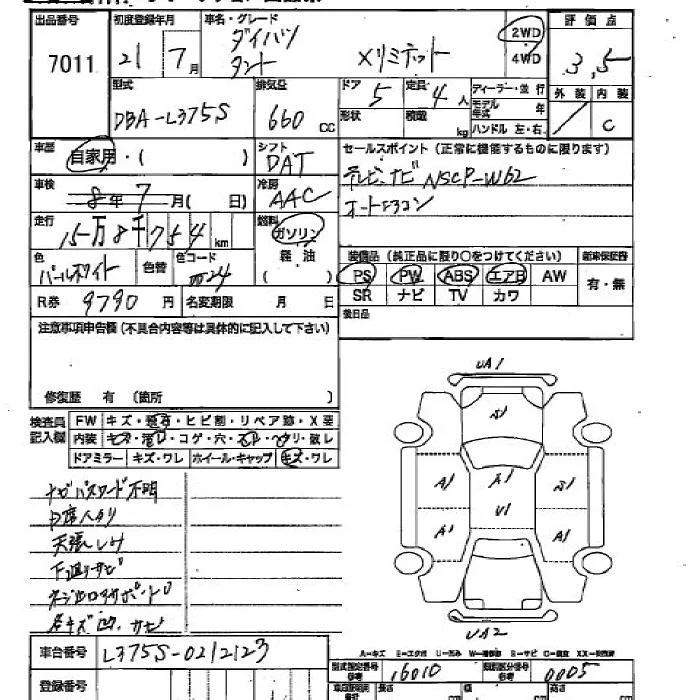 出品番号 初度登録年月 車名・グレード 評価点
7011 21 7月 ダイハツ タント Xリミテッド 2WD 4WD 3.5
型式 排気量 ドア 定員 ディーラー・並行 外装 内装
DBA-L375S 660cc 5 4人 モデル年式 年 C
形状 積載 kg ハンドル 左・右
車歴 自家用・( ) シフト DAT セールスポイント(正常に機能するものに限ります)
車検 8年7月( 日) 冷房 AAC テレビナビ NSCP-W62
オートエアコン
走行 15万8千754km 燃料 ガソリン 軽油 ( )
色 パールホワイト 色替 色コード W24
装備品(純正品に限り○をつけてください) 新車保証書
PS PW ABS エアB AW 有・無
SR ナビ TV カワ
R券 9790円 名変期限 月 日 後日品
注意事項申告欄(不具合内容等は具体的に記入して下さい)
修復歴 有 (箇所 )
検査員記入欄 FW キズ・飛石・ヒビ割・リペア跡・X要
内装 キズ・汚レ・コゲ・穴・ ・ ・破レ
ドアミラー キズ・ワレ ホイール・キャップ キズ・ワレ
UA1
A1
A1 A1 A1
U1
A1 A1
UA2
ナビパスワード不明
天張しみ
下廻りサビ
A=キズ E=エクボ U=凹み W=補修跡 S=サビ C=腐食 XX=交換済
車台番号 L375S-0212123
型式指定番号 参考 16010 類別区分番号 参考 0005
登録番号 長さ cm 幅 cm 高さ cm